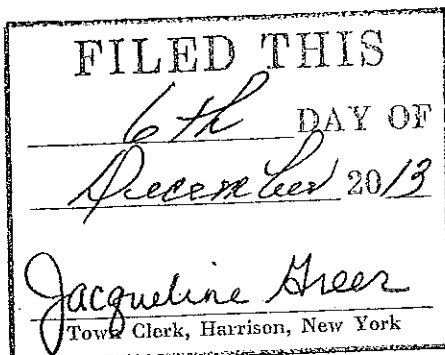 FILED THIS
6th DAY OF
December 2013
Jacqueline Greer
Town Clerk, Harrison, New York